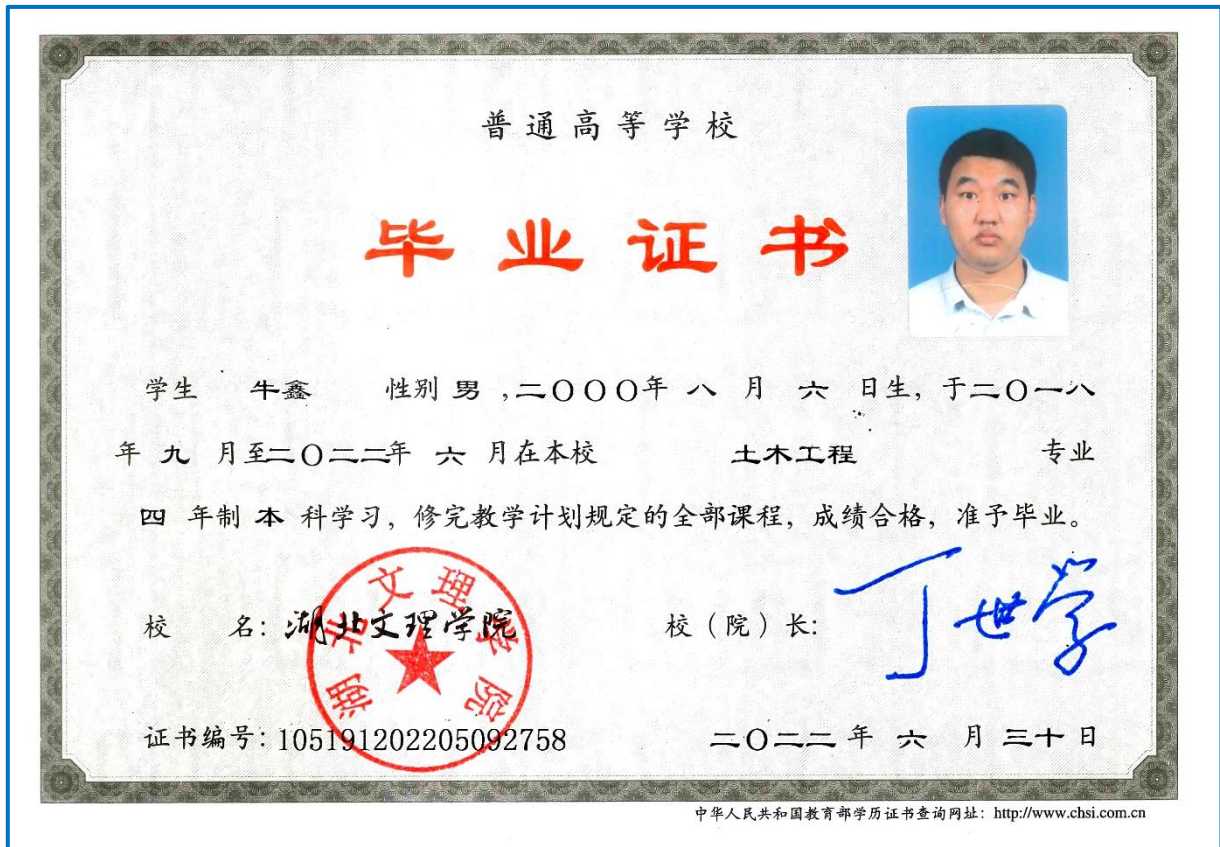 普通高等学校
毕业证书
学生 牛鑫 性别 男 ,二〇〇〇年 八 月 六 日生, 于二〇一八
年 九 月至二〇二二年 六 月在本校 土木工程 专业
四 年制 本 科学习, 修完教学计划规定的全部课程, 成绩合格, 准予毕业。
校 名: 湖北文理学院 校（院）长: 丁世学
湖北文理学院
证书编号: 105191202205092758 二〇二二 年 六 月 三十 日
中华人民共和国教育部学历证书查询网址: http://www.chsi.com.cn